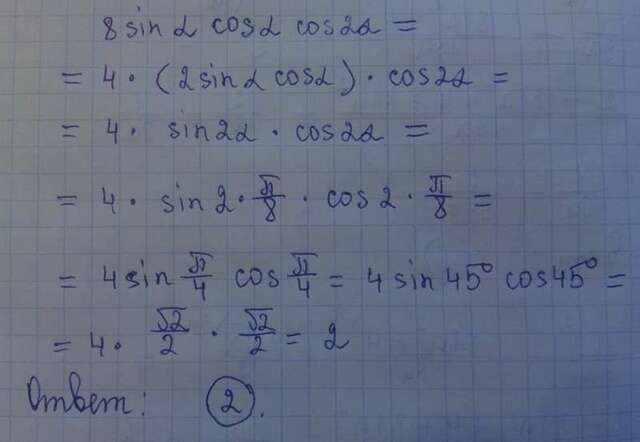 8 sin α cos α cos 2α =
= 4 · (2 sin α cos α) · cos 2α =
= 4 · sin 2α · cos 2α =
= 4 · sin 2 · π/8 · cos 2 · π/8 =
= 4 sin π/4 cos π/4 = 4 sin 45° cos 45° =
= 4 · √2/2 · √2/2 = 2
Ответ: 2.